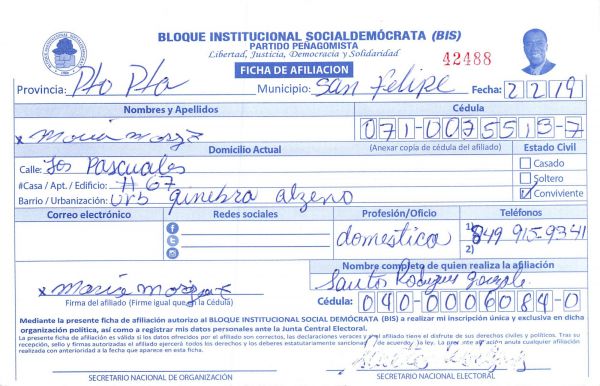 BLOQUE INSTITUCIONAL SOCIALDEMÓCRATA (BIS)
PARTIDO PEÑAGOMISTA
Libertad, Justicia, Democracia y Solidaridad
42488
FICHA DE AFILIACION
Provincia: Pto Pta Municipio: San Felipe Fecha: 2 2 19
Nombres y Apellidos Cédula
x Maria 071-0075513-7
Domicilio Actual (Anexar copia de cédula del afiliado) Estado Civil
Calle: Los Pascuales Casado
#Casa / Apt. / Edificio: # 67 Soltero
Barrio / Urbanización: Urb ginebra alzeno Conviviente
Correo electrónico Redes sociales Profesión/Oficio Teléfonos
domestica 1) 849 915-9341
2)
Nombre completo de quien realiza la afiliación
x Maria Santos Rodriguez
Firma del afiliado (Firme igual que en la Cédula) Cédula: 040-0006084-0
Mediante la presente ficha de afiliación autorizo al BLOQUE INSTITUCIONAL SOCIAL DEMÓCRATA (BIS) a realizar mi inscripción única y exclusiva en dicha
organización política, así como a registrar mis datos personales ante la Junta Central Electoral.
La presente ficha de afiliación es válida si los datos ofrecidos por el afiliado son correctos, las declaraciones veraces y el afiliado tiene el disfrute de sus derechos civiles y políticos. Tras su
recepción, sello y firmas autorizadas el afiliado ejercerá todos los derechos y los deberes estatutariamente sancionados de acuerdo a la ley. La presente afiliación anula cualquier afiliación
realizada con anterioridad a la fecha que aparece en esta ficha.
SECRETARIO NACIONAL DE ORGANIZACIÓN SECRETARIO NACIONAL ELECTORAL